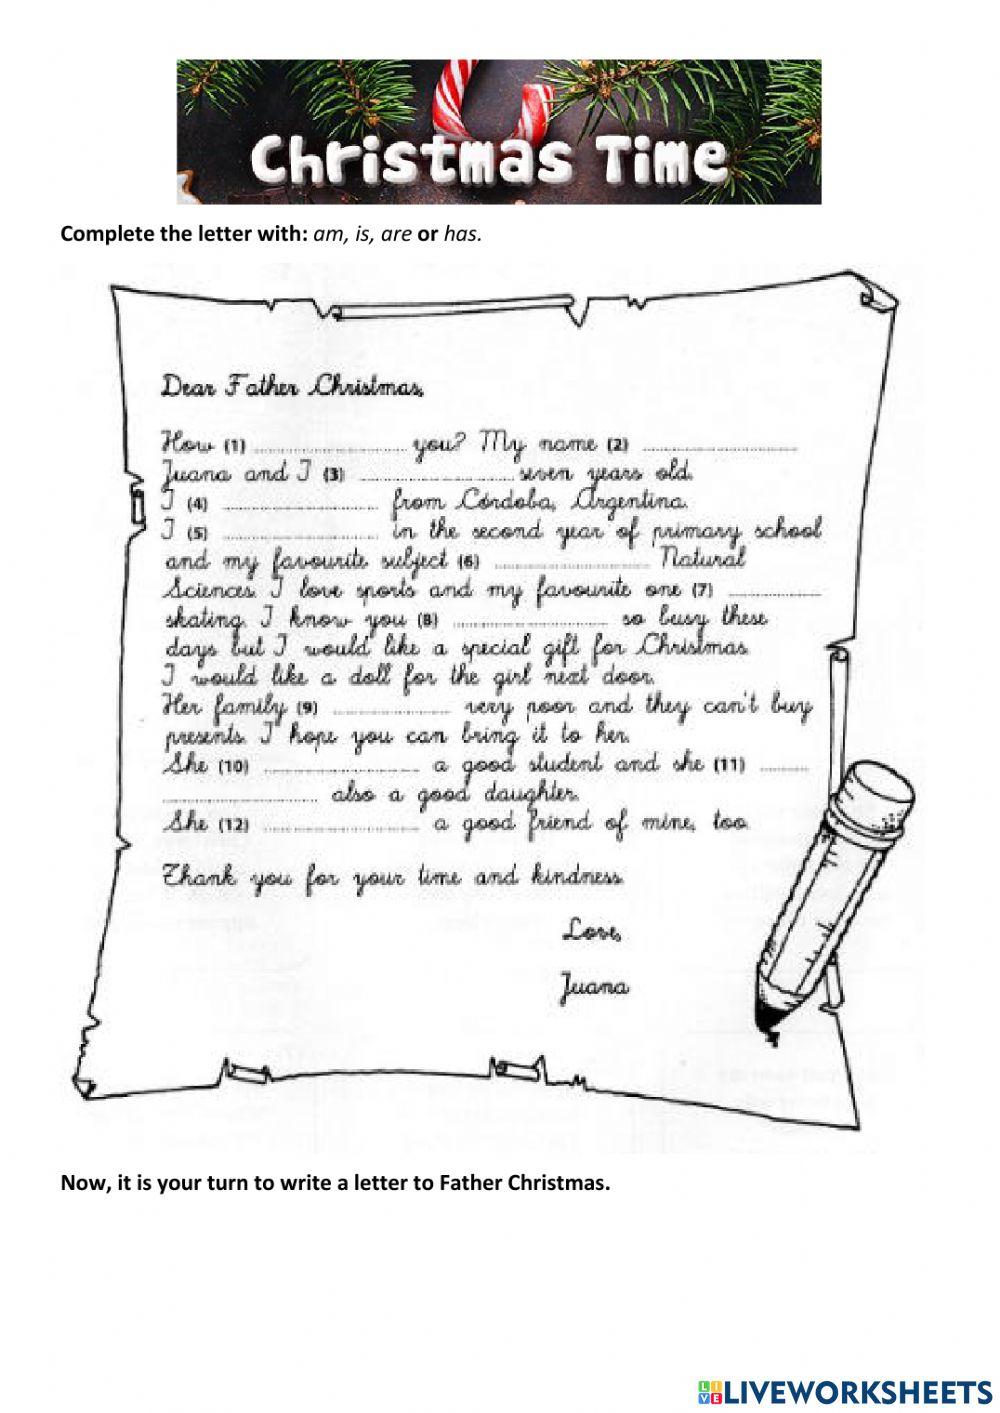 Christmas Time
Complete the letter with: am, is, are or has.
Dear Father Christmas,
How (1) ........................ you? My name (2) ........................
Juana and I (3) ........................ seven years old.
I (4) ........................ from Córdoba, Argentina.
I (5) ........................ in the second year of primary school
and my favourite subject (6) ........................ Natural
Sciences. I love sports and my favourite one (7) ..............
skating. I know you (8) ........................ so busy these
days but I would like a special gift for Christmas.
I would like a doll for the girl next door.
Her family (9) .................. very poor and they can't buy
presents. I hope you can bring it to her.
She (10) ........................ a good student and she (11) ........
........................ also a good daughter.
She (12) ........................ a good friend of mine, too.
Thank you for your time and kindness.
Love,
Juana
Now, it is your turn to write a letter to Father Christmas.
LIVE LIVEWORKSHEETS